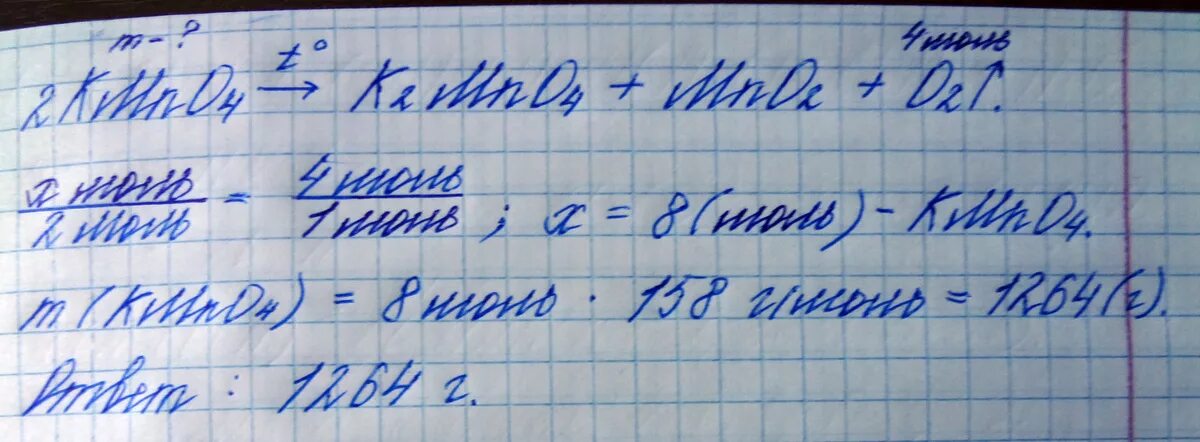 m - ? 4 моль
2KMnO4 t° → K2MnO4 + MnO2 + O2↑.
x моль / 2 моль = 4 моль / 1 моль ; x = 8 (моль) - KMnO4.
m (KMnO4) = 8 моль · 158 г/моль = 1264 (г).
Ответ : 1264 г.